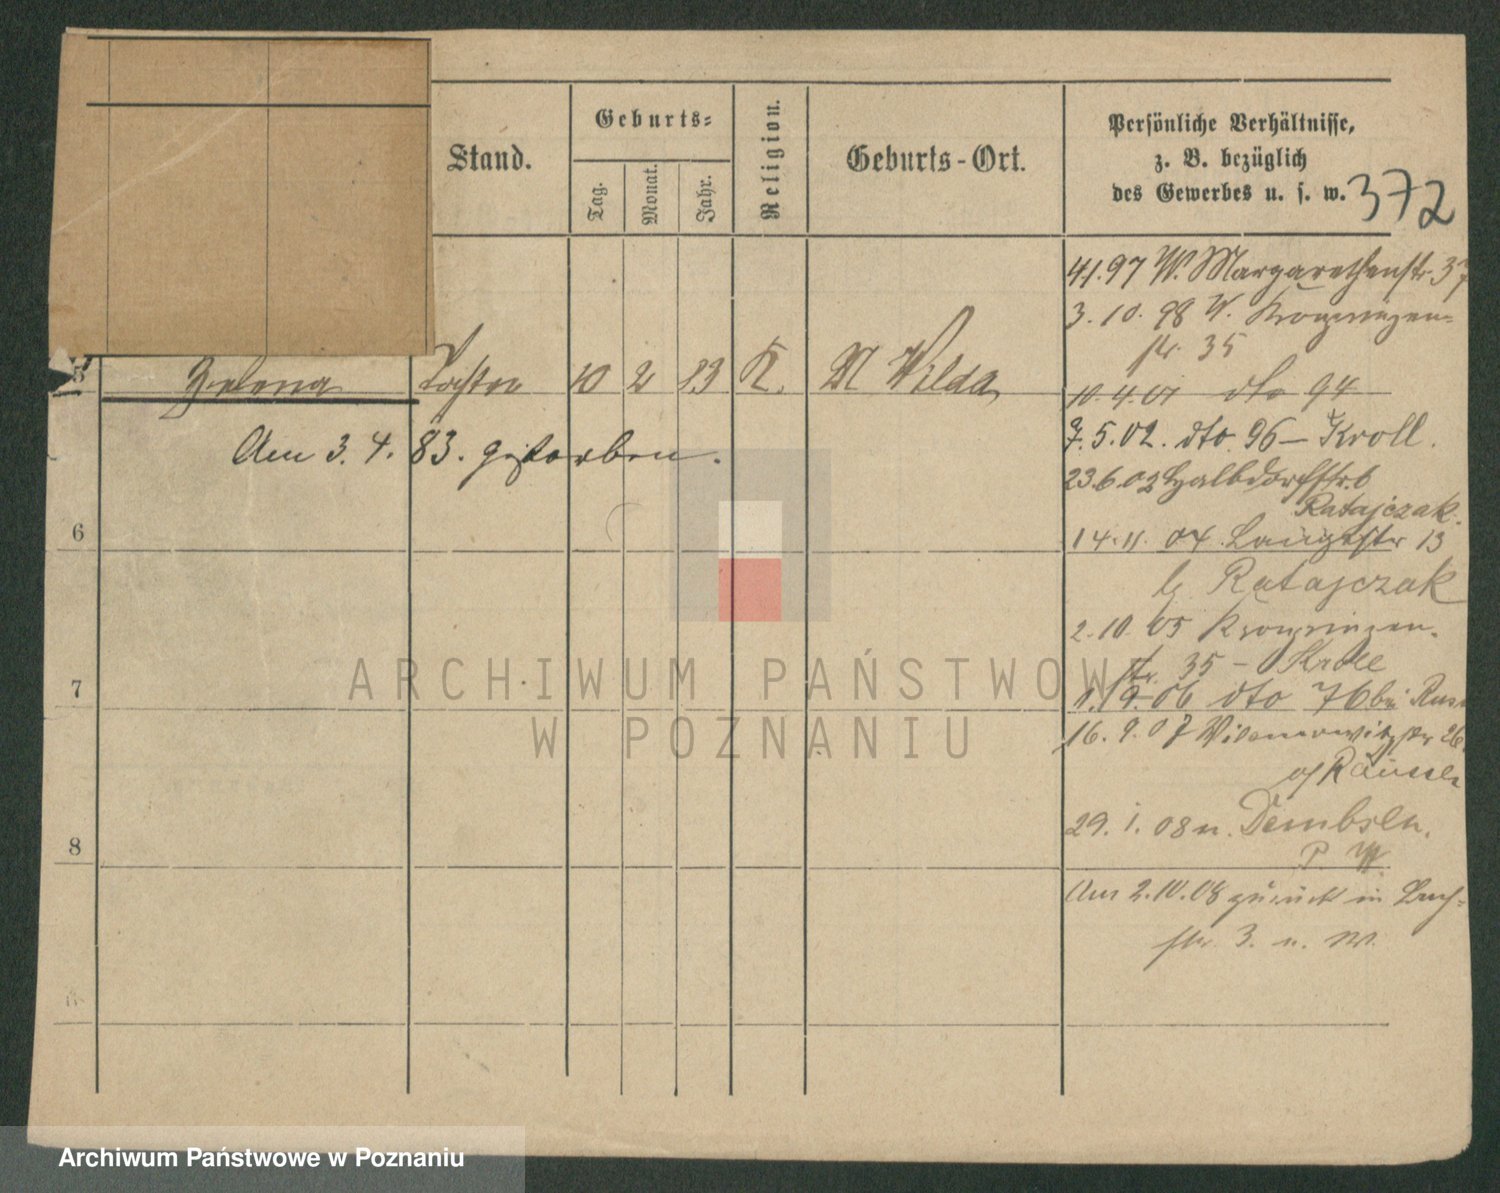 Stand.
Geburts-
Tag.
Monat.
Jahr.
Religion.
Geburts-Ort.
Persönliche Verhältnisse,
z. B. bezüglich
des Gewerbes u. s. w.
372
5
Helena Tochter 10 2 83 K. Wilda
Am 3. 4. 83. gestorben.
6
7
8
4.1.97 W. Margarethenstr 37
3. 10. 98 W. Kronprinzen-
str. 35
10. 4. 01 dto 94
7. 5. 02. dto. 96 - Kroll.
23.6.03 Halbdorfstr. 6
Ratajczak.
14. 11. 04 Langestr 13
b. Ratajczak
2. 10. 05 Kronprinzen-
str. 35 - Kroll
1. 9. 06 dto 76 bei
16. 9. 07 26
29. 1. 08 n. Dembsen.
P. W.
Am 2. 10. 08 zurück in
str. 3. u. W.
ARCHIWUM PAŃSTWOWE
W POZNANIU
Archiwum Państwowe w Poznaniu